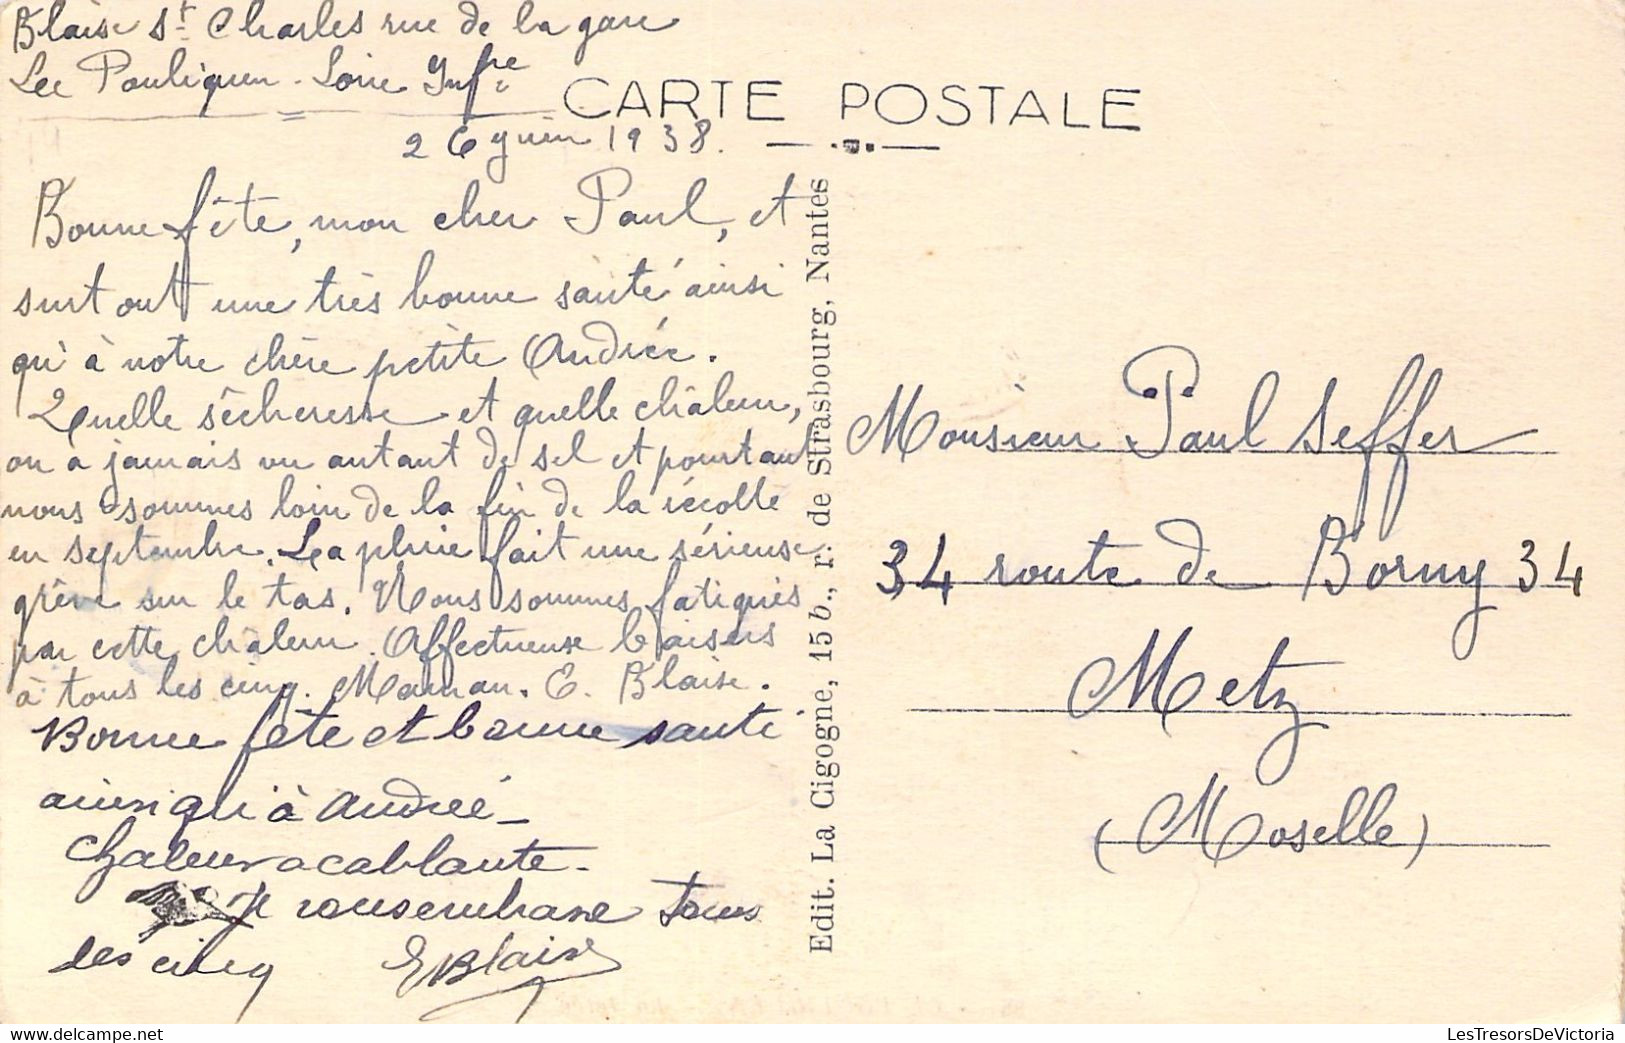 Blaise St Charles rue de la gare
Lee Pouliguen - Loire Infre
26 juin 1938.
CARTE POSTALE
Bonne fête, mon cher Paul, et
surtout une très bonne santé ainsi
qu'à notre chère petite Andrée.
Quelle sècheresse et quelle châleur,
on a jamais vu autant de sel et pourtant
nous sommes loin de la fin de la récolte
en septembre. La pluie fait une sérieuse
grève sur le tas. Nous sommes fatigués
par cette châleur. Affectueuse baisers
à tous les cinq. Maman. E. Blaise.
Bonne fête et bonne santé
ainsi qu'à Andrée -
Chaleur acablante -
Je vous embrasse tous
les cinq EBlaise
Edit. La Cigogne, 15 b., r. de Strasbourg, Nantes
Monsieur Paul Seffer
34 route de Borny 34
Metz
(Moselle)
LesTresorsDeVictoria.delcampe.net
LesTresorsDeVictoria